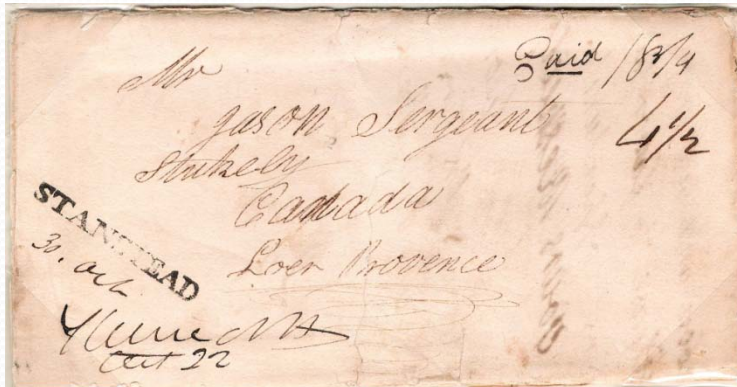 Paid 18 3/4
4 1/2
Mr
Jason Sergeant
Stukely
Canada
Loer Provence
STANSTEAD
30. Oct
NH
Oct 22